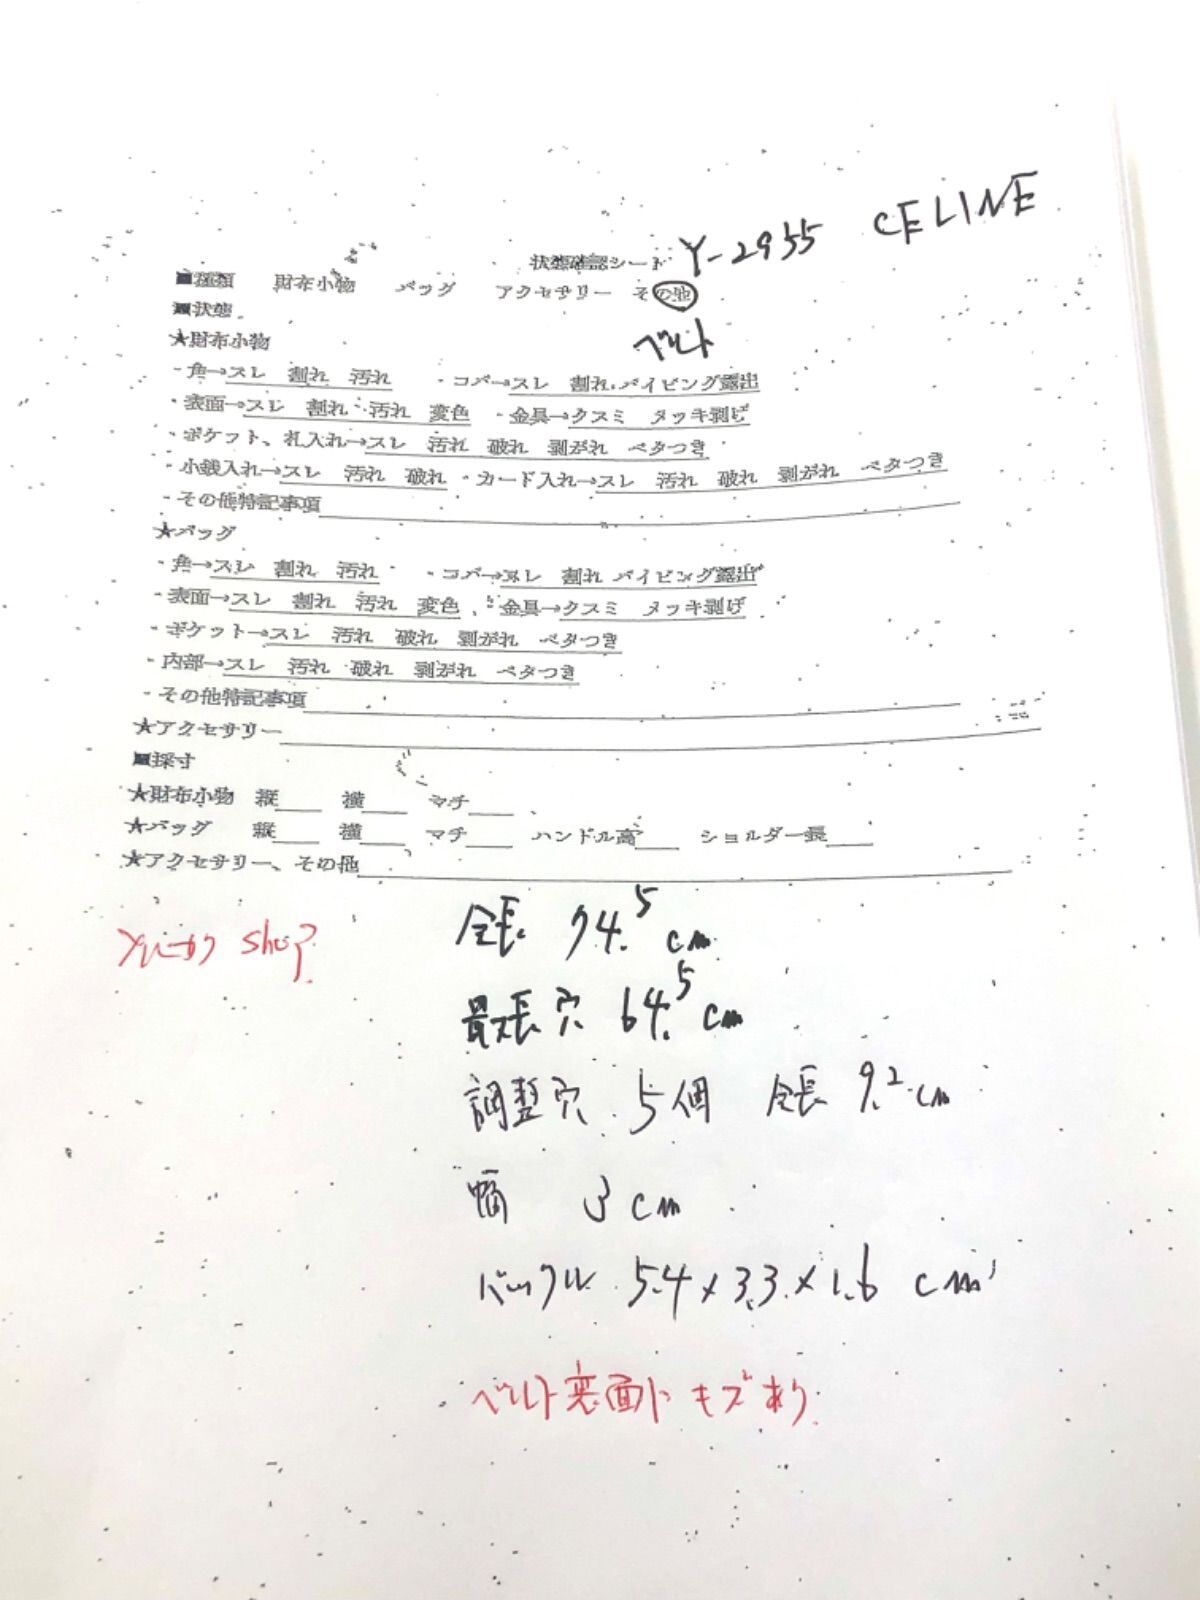 Y-2955 CELINE
状態確認シート
■種類 財布小物 バッグ アクセサリー その他
■状態 ベルト
★財布小物
・角→スレ 割れ 汚れ ・コバ→スレ 割れ パイピング露出
・表面→スレ 割れ 汚れ 変色 ・金具→クスミ メッキ剥げ
・ポケット、札入れ→スレ 汚れ 破れ 剥がれ ベタつき
・小銭入れ→スレ 汚れ 破れ ・カード入れ→スレ 汚れ 破れ 剥がれ ベタつき
・その他特記事項
★バッグ
・角→スレ 割れ 汚れ ・コバ→スレ 割れ パイピング露出
・表面→スレ 割れ 汚れ 変色 ・金具→クスミ メッキ剥げ
・ポケット→スレ 汚れ 破れ 剥がれ ベタつき
・内部→スレ 汚れ 破れ 剥がれ ベタつき
・その他特記事項
★アクセサリー
■採寸
★財布小物 縦 横 マチ
★バッグ 縦 横 マチ ハンドル高 ショルダー長
★アクセサリー、その他
shop
全長 74.5 cm
最長穴 64.5 cm
調整穴 5個 全長 9.2 cm
幅 3 cm
バックル 5.4 x 3.3 x 1.6 cm
ベルト裏面に キズあり